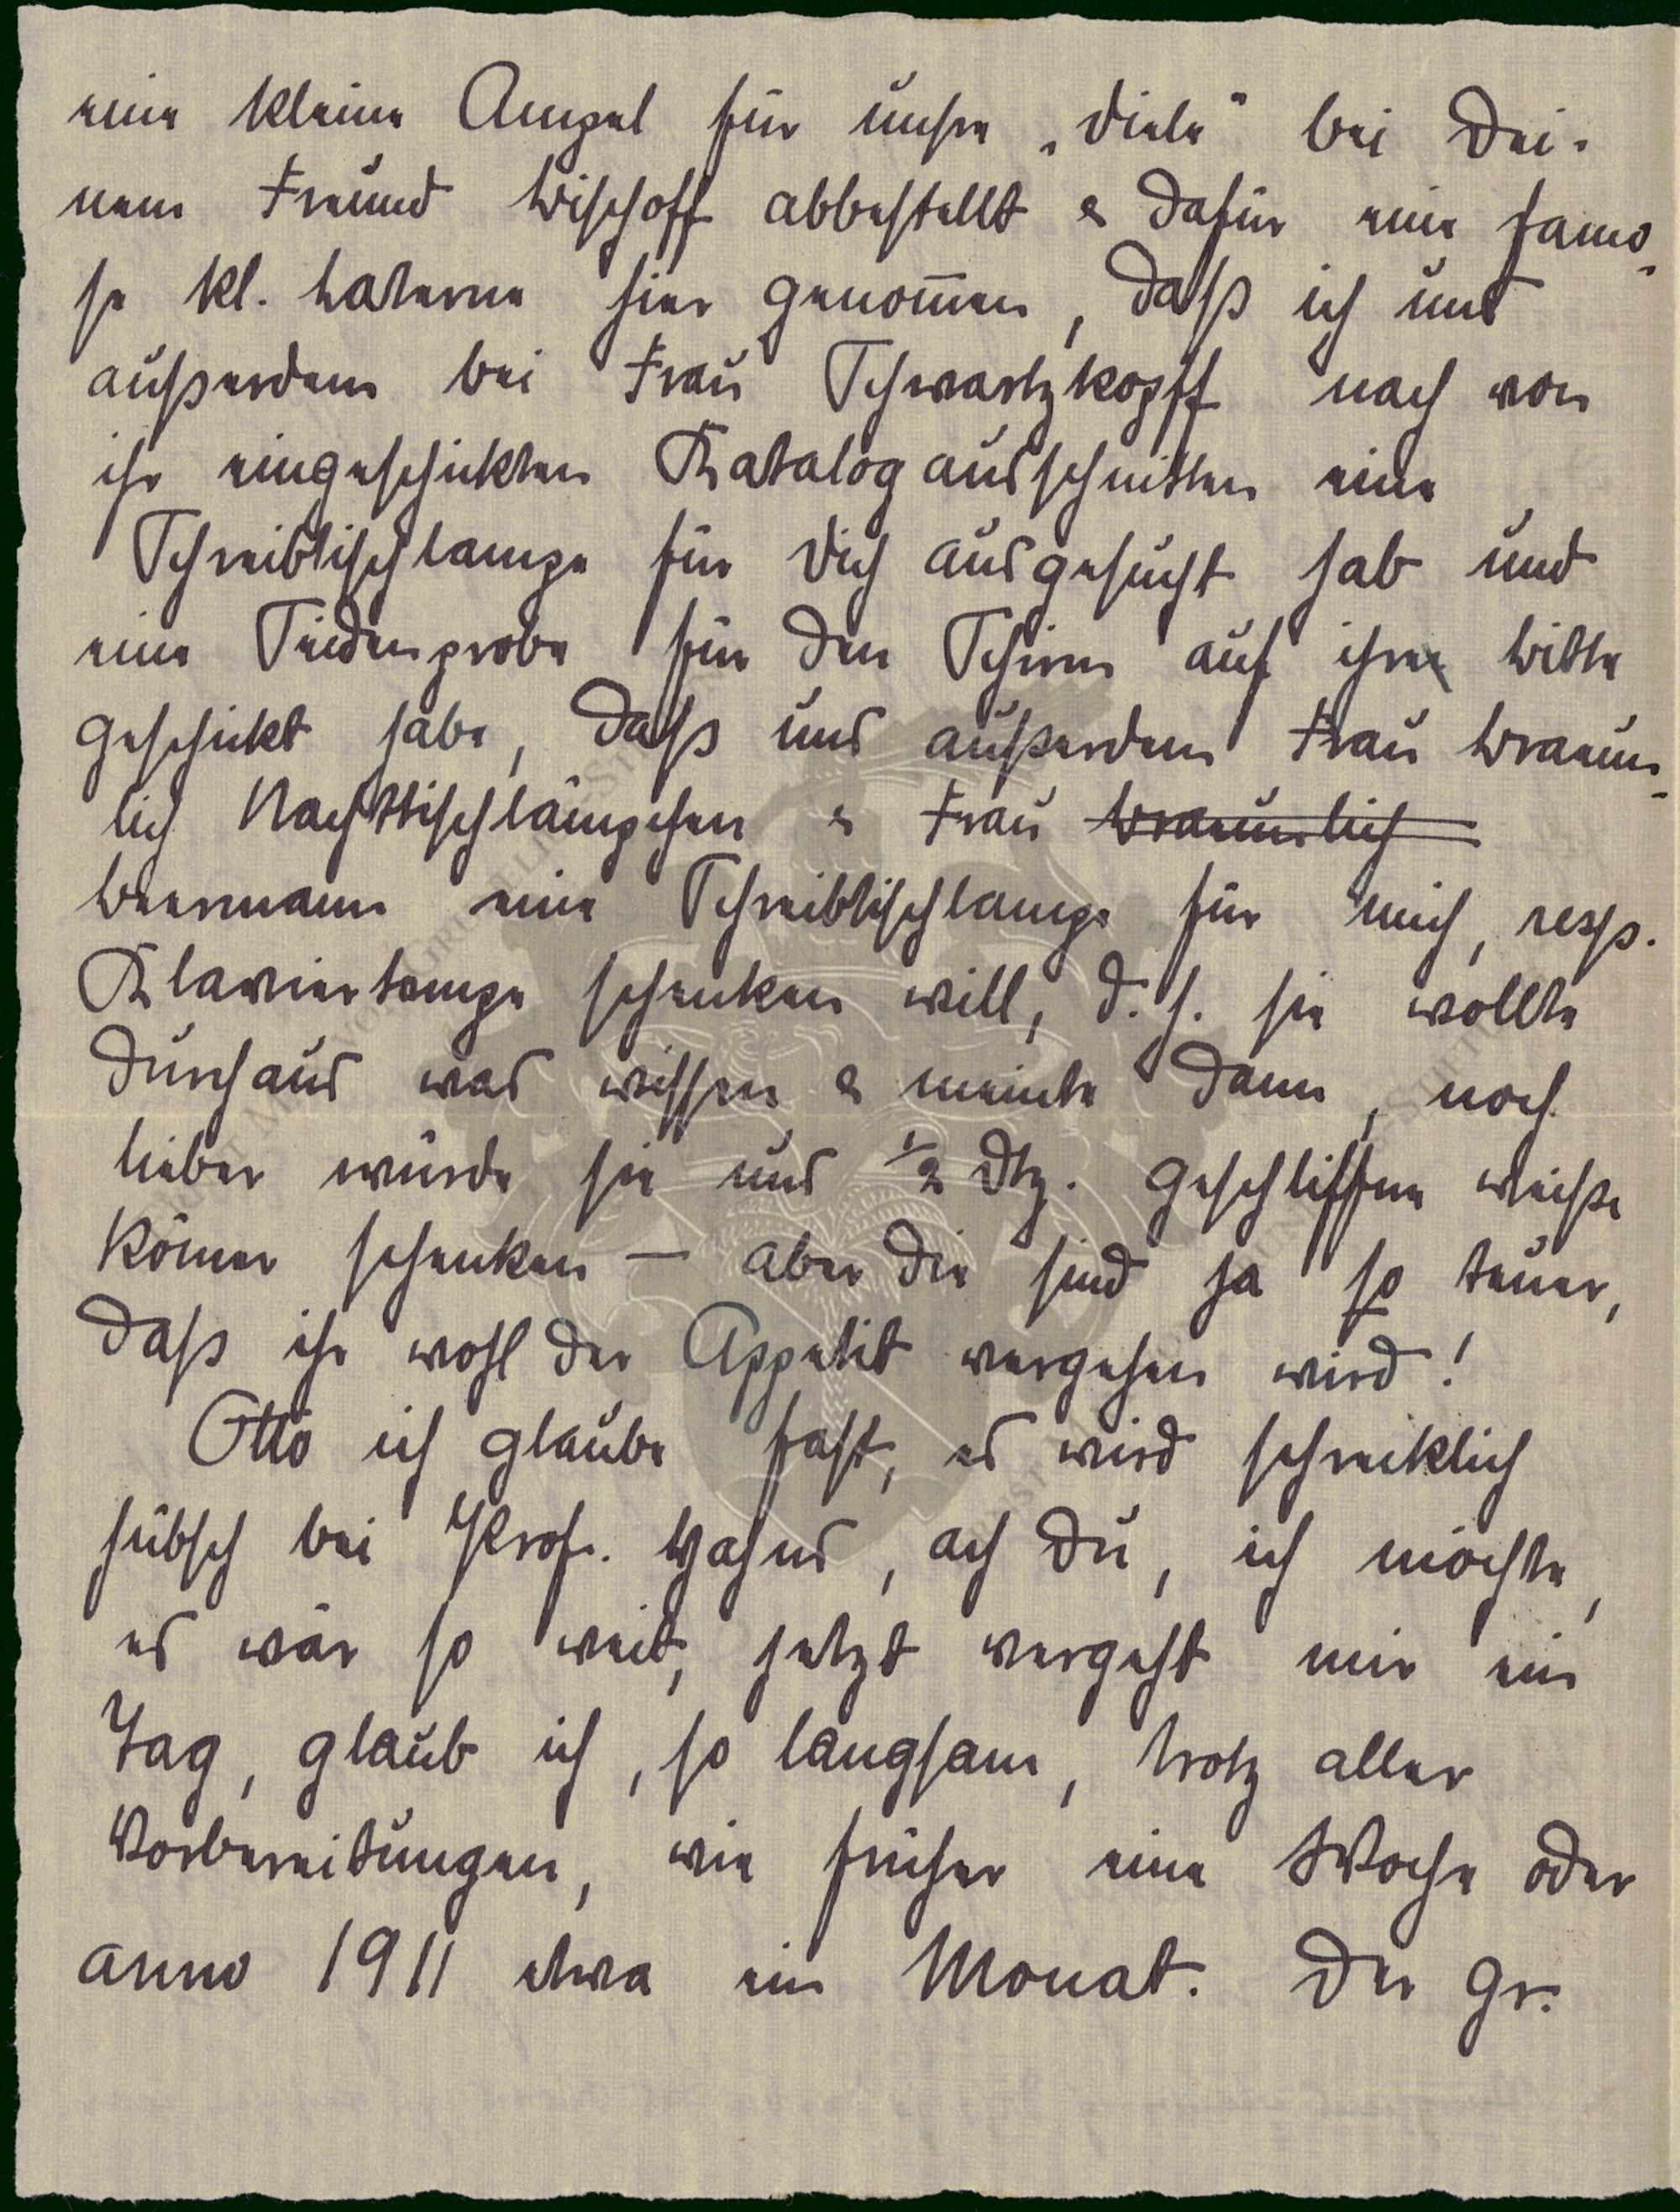 eine kleine Ampel für unsre „Diele“ bei Dei-
nem Freund Bischoff abbestellt & dafür eine famo-
se kl. Laterne hier genommen, daß ich uns
außerdem bei Frau Schwartzkopff nach von
ihr eingeschickten Katalogausschnitten eine
Schreibtischlampe für Dich ausgesucht hab und
eine Seidenprobe für den Schirm auf ihre Bitte
geschickt habe, daß uns außerdem Frau Braeun-
lich Nachttischlämpchen & Frau Braeunlich
Beermann eine Schreibtischlampe für mich, resp.
Klavierlampe schenken will, d. h. sie wollte
durchaus was wissen & meinte dann, noch
lieber würde sie uns ½ Dtz. geschliffne weiße
Römer schenken — aber die sind ja so teuer,
daß ihr wohl der Appetit vergehen wird!
Otto ich glaube fast, es wird schrecklich
hübsch bei Prof. Hahns, ach Du, ich möchte,
es wär so weit, jetzt vergeht mir ein
Tag, glaub ich, so langsam, trotz aller
Vorbereitungen, wie früher eine Woche oder
anno 1911 etwa ein Monat. Der gr.